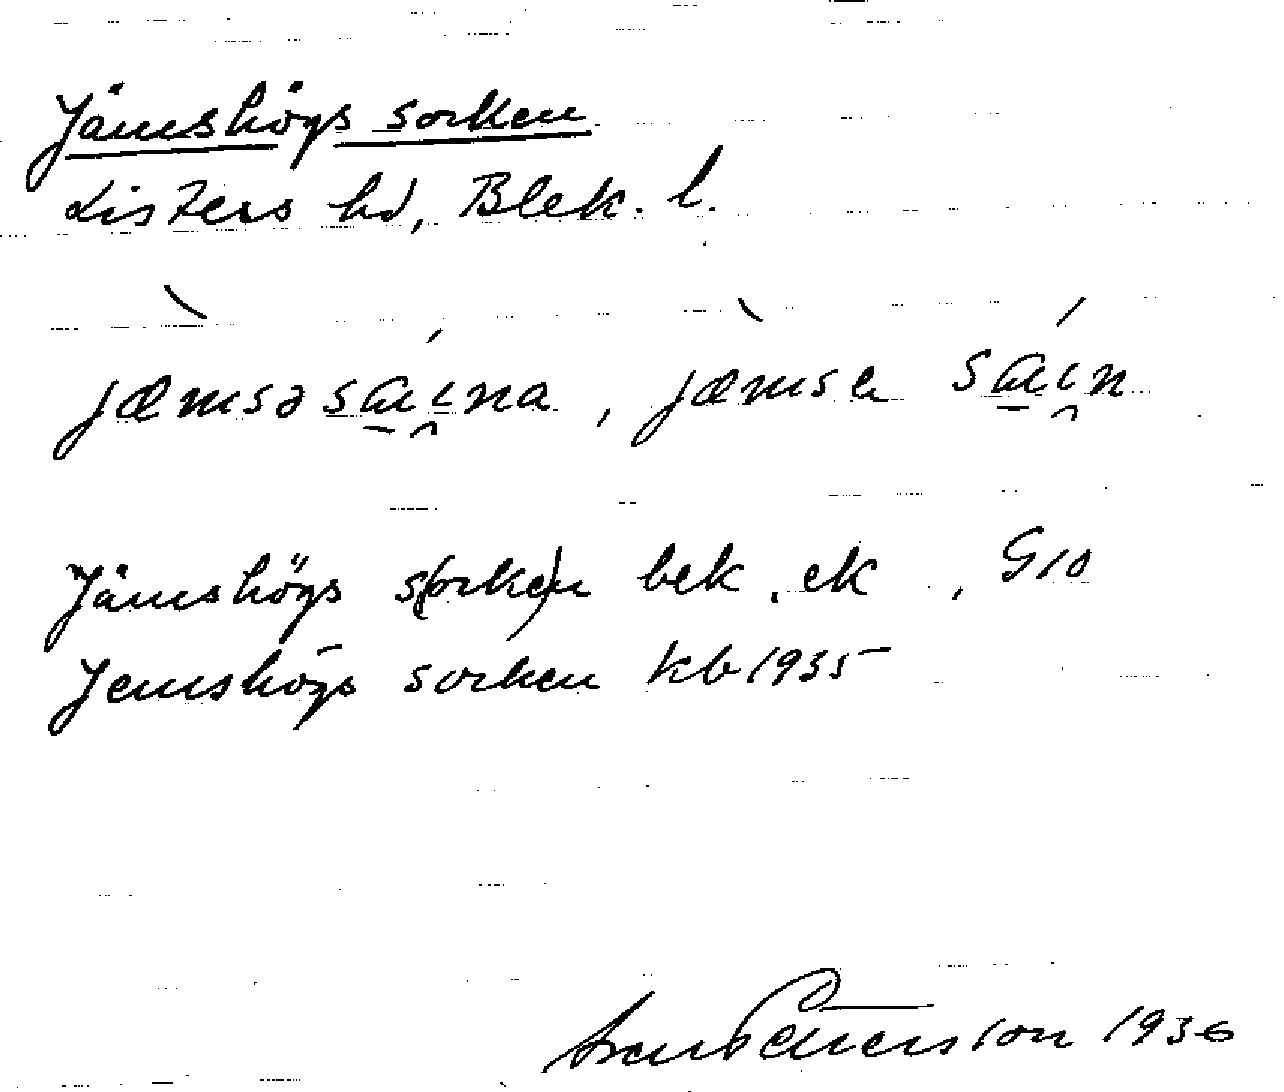 Jämshögs socken
Listers hd, Blek. l.
jæmsəsǻi̯na, jæmsa sǻi̯n
Jämshögs s(ocke)n bek. ek, G10
Jemshögs socken kb 1935
1936